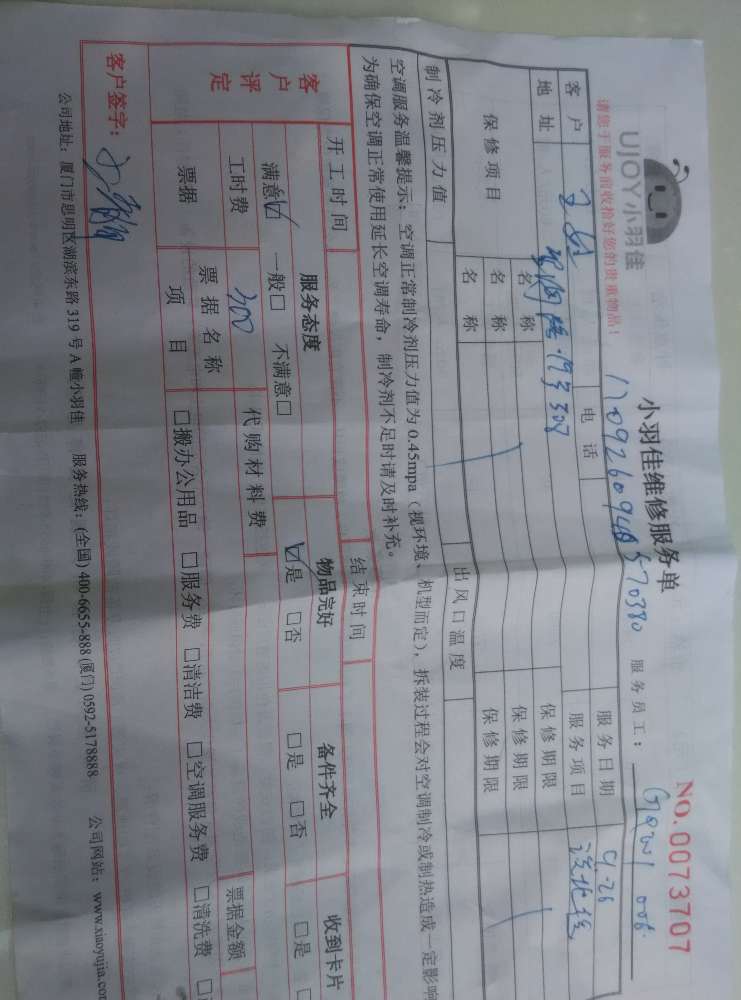 UJOY小羽佳
小羽佳维修服务单
NO.0073707
请您于服务前收拾好您的贵重物品！
服务员工：
客户
电话
服务日期
地址
307
服务项目
保修项目
名称
保修期限
名称
保修期限
名称
保修期限
制冷剂压力值
出风口温度
空调服务温馨提示：空调正常制冷剂压力值为0.45mpa（视环境、机型而定），拆装过程会对空调制冷或制热造成一定影响
为确保空调正常使用延长空调寿命，制冷剂不足时请及时补充。
开工时间
结束时间
客户评定
服务态度
物品完好
备件齐全
收到卡片
满意☑ 一般□ 不满意□
☑是 □否
□是 □否
□是
工时费
300
代购材料费
票据
票据名称
票据金额
项目
□搬办公用品 □服务费 □清洁费 □空调服务费 □清洗费
客户签字：
公司地址：厦门市思明区湖滨东路319号A幢小羽佳 服务热线：(全国) 400-6655-888 (厦门) 0592-5178888 公司网站：www.xiaoyujia.com